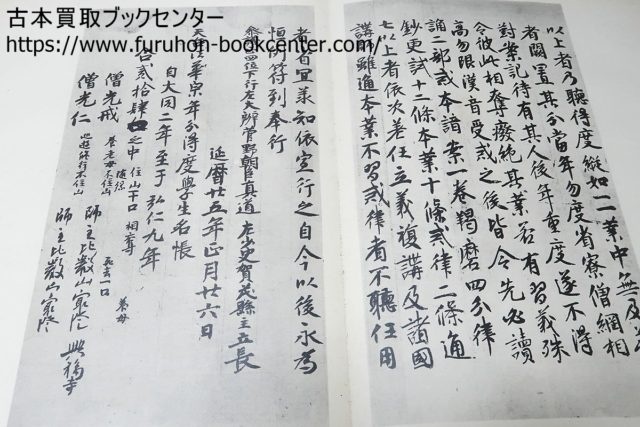 古本買取ブックセンター
https://www.furuhon-bookcenter.com/
以上者乃聽得度縱如一業中無及
者闕置其分當年勿度省寮僧綱相
對案記待有其人後年重度遂不得
令彼此相奪廢絶其業若有習義殊
高勿限漢音受戒之後皆令先必讀
誦二部戒本諳案一卷羯磨四分律
鈔更試十二條本業十條戒律二條通
七以上者依次差任立義複講及諸國
講師雖通本業不習戒律者不聽任用
者省宜承知依宣行之自今以後永為
恒例符到奉行
參議正四位下行左大辨菅野朝臣真道 左少史賀茂縣主立長
延曆廿五年正月廿六日
天台法華宗年分得度學生名帳
合貳拾肆口之中
自大同二年至于弘仁九年
僧光戒
養老母不住山
師主比叡山最澄
僧光仁
師主比叡山最澄
興福寺